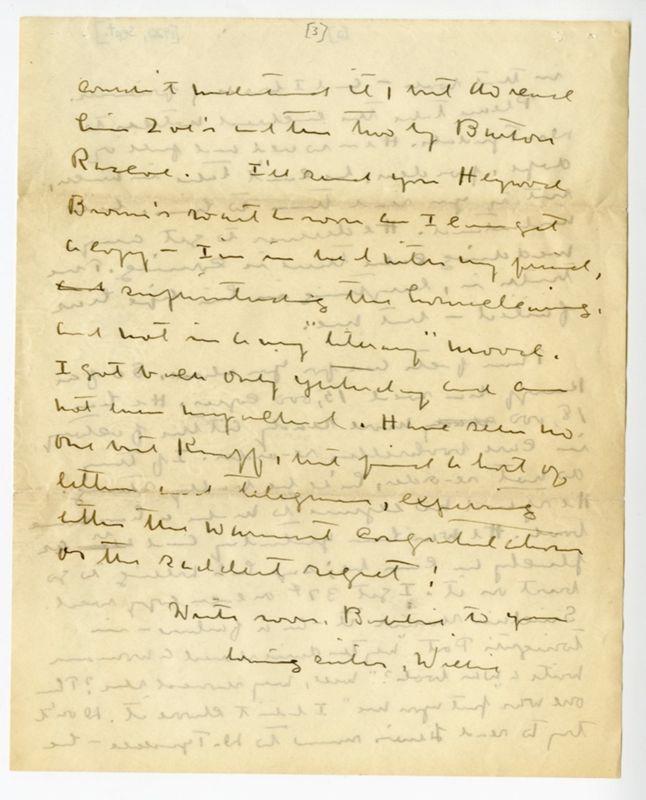 [3]
couldn't understand it, but do read
him Zoë's and the two by Burton
Rascoe. I'll send you Heywood
Broun's as soon as I can get
a copy – I'm in bed with my friend,
and superintending the housecleaning,
and not in any "literary" mood.
I got back only yesterday and am
not unpacked. Have seen no
one but Knopf, but find a host of
letters and telegrams, expressing
either the warmest congratulations
or the saddest regret!
Write soon. to your
loving sister, Willie